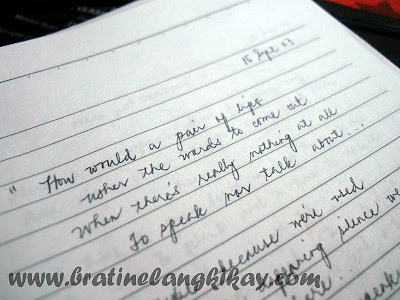 15 Sept 03
" How would a pair of lips
usher the words to come out
When there's really nothing at all
To speak nor talk about...
because we're used
silence we
www.bratinelangkikay.com